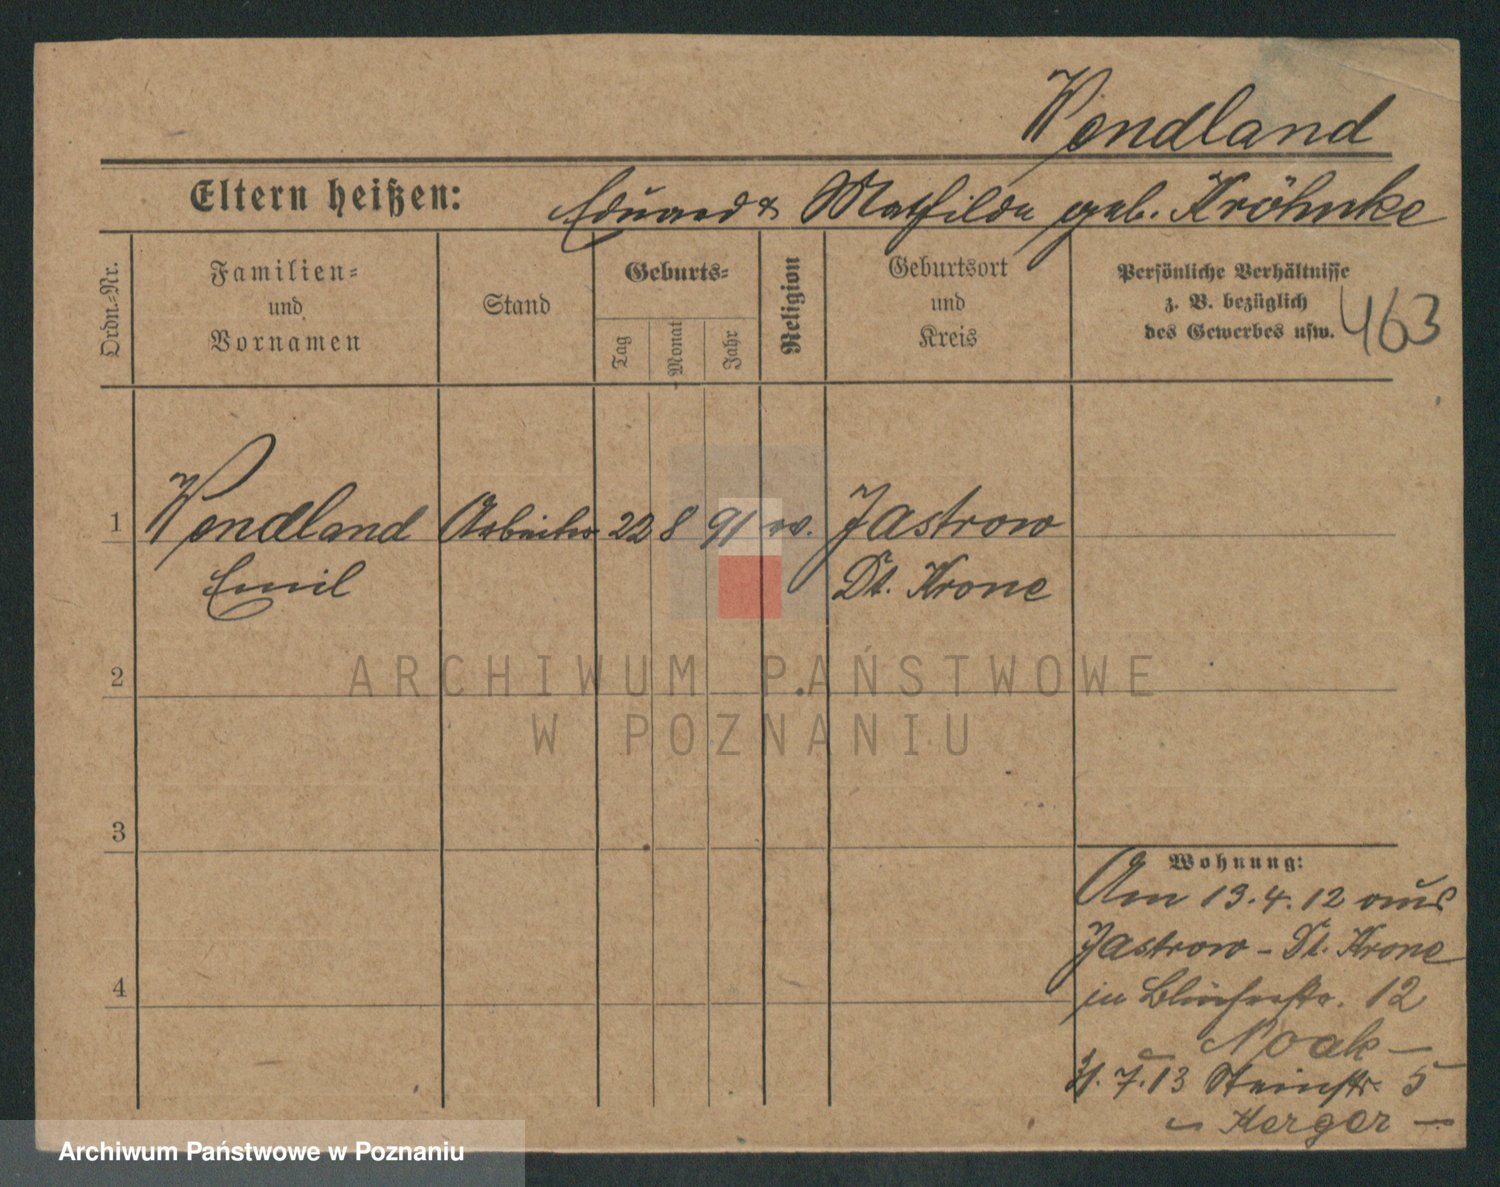 Wendland
Eltern heißen: Eduard & Mathilde geb. Kröhnke
Ordn.-Nr.
Familien-
und
Vornamen
Stand
Geburts-
Tag
Monat
Jahr
Religion
Geburtsort
und
Kreis
Persönliche Verhältnisse
z. B. bezüglich
des Gewerbes usw.
463
1 Wendland Arbeiter 22 8 91 ev. Jastrow
Emil Dt. Krone
2
ARCHIWUM PAŃSTWOWE
W POZNANIU
3
Wohnung:
Am 13.4.12 aus
Jastrow - Dt. Krone
in Blücherstr. 12
Noak -
7.13 Steinstr. 5
Kerger -
4
Archiwum Państwowe w Poznaniu